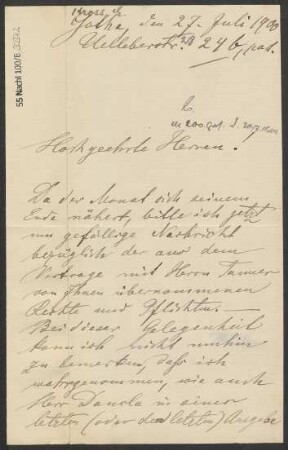 Gotha, den 27. Juli 1900
Uelleberstr. 24 b, pat.
55 Nachl 100/B,
Hochgeehrte Herren.
Da der Monat sich seinem
Ende nähert, bitte ich jetzt
um gefällige Nachricht
bezüglich der aus dem
Vertrage mit Herrn Tanner
von Ihnen übernommenen
Rechte und Pflichten. —
Bei dieser Gelegenheit
kann ich nicht umhin
zu bemerken, dass ich
wahrgenommen, wie auch
Herr Dancla in einer
letzten (oder der letzten) Ausgabe